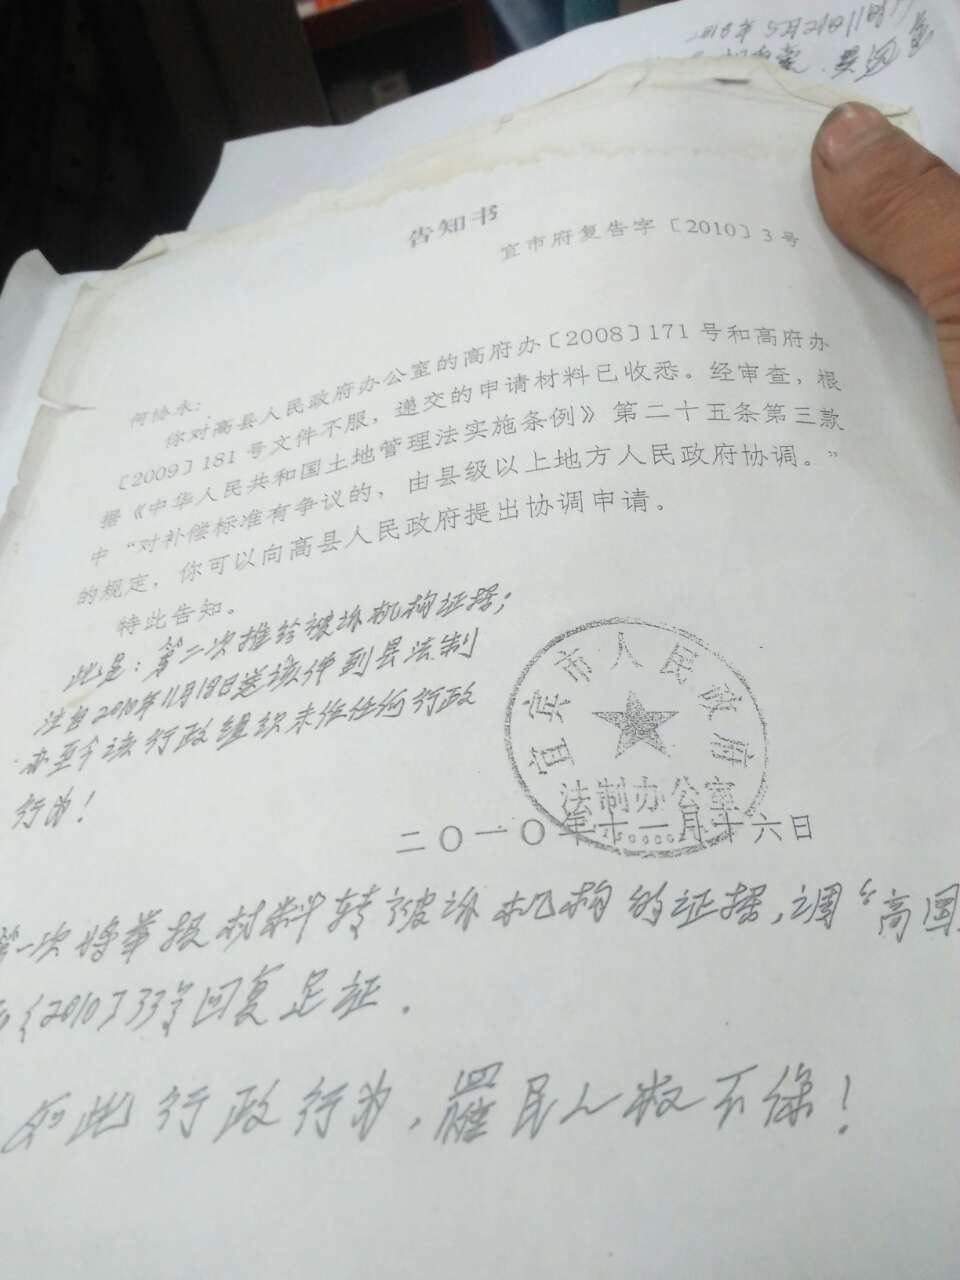 告知书
宜市府复告字〔2010〕3号
你对高县人民政府办公室的高府办〔2008〕171号和高府办
〔2009〕181号文件不服，递交的申请材料已收悉。经审查，根
据《中华人民共和国土地管理法实施条例》第二十五条第三款
中“对补偿标准有争议的，由县级以上地方人民政府协调。”
的规定，你可以向高县人民政府提出协调申请。
特此告知。
此是：第二次推给被诉机构证据；
注自2010年11月18日送该件到县法制
办至今该行政组织未作任何行政
行为！
宜宾市人民政府
法制办公室
二〇一〇年十一月十六日
第一次将举报材料转被诉机构的证据，调“高国
〔2010〕33号回复足证．
如此行政行为，罹民人权不保！